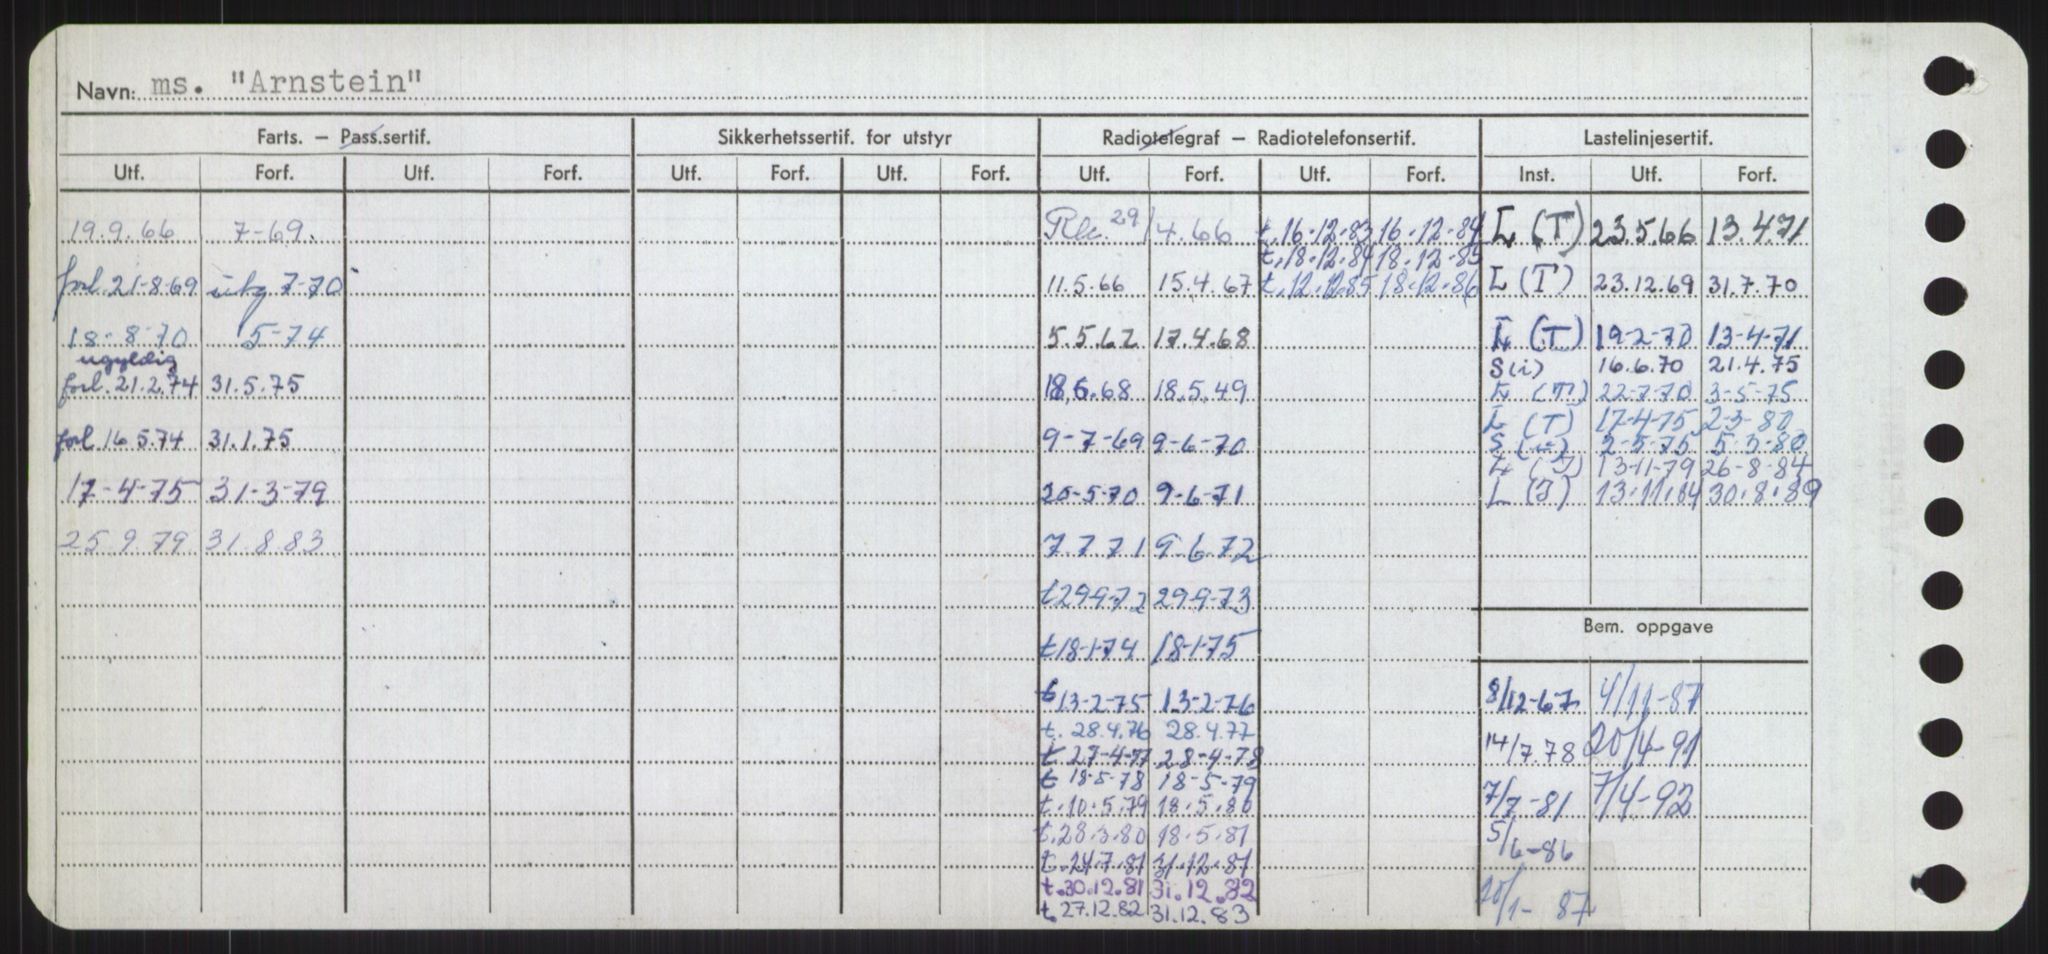 Navn: ms. "Arnstein"
Farts. — Pass.sertif. Sikkerhetssertif. for utstyr Radiotelegraf — Radiotelefonsertif. Lastelinjesertif.
Utf. Forf. Utf. Forf. Utf. Forf. Utf. Forf. Utf. Forf. Utf. Forf. Inst. Utf. Forf.
19.9.66 7-69.
forl. 21-8-69 utg 7-70
18-8-70 5-74
ugyldig
forl. 21.2.74 31.5.75
forl 16.5.74 31.1.75
17-4-75 31-3-79
25.9.79 31.8.83
29/4.66
11.5.66 15.4.67
5.5.67 17.4.68
18.6.68 18.5.49
9-7-69 9-6-70
20-5-70 9-6-71
7.7.71 9-6-72
t 29-9-72 29-9-73
t 18-1-74 18-1-75
t 13-2-75 13-2-76
t. 28.4.76 28.4.77
t 27-4-77 28-4-78
t 18-5-78 18-5-79
t. 10.5.79 18.5.80
t. 28.3.80 18.5.81
t. 24.7.81 31.12.81
t. 30.12.81 31.12.82
t. 27.12.82 31.12.83
t. 16-12-83 16-12-84
t. 18.12.84 18.12-85
t. 12.12.85 18-12-86
L (T) 23.5.66 13.4.71
L (T) 23.12.69 31.7.70
L (T) 19-2-70 13-4-71
S(i) 16.6.70 21.4.75
L (T) 22-7-70 3-5-75
L (T) 17-4-75 2-3-80
S (i) 2-5-75 5-3-80
L (T) 13-11-79 26-8-84
L (T) 13.11.84 30.8.89
Bem. oppgave
8/12-67 4/11-87
14/7.78 20/4-91
7/7-81 7/4-92
5/6-86
20/1-87